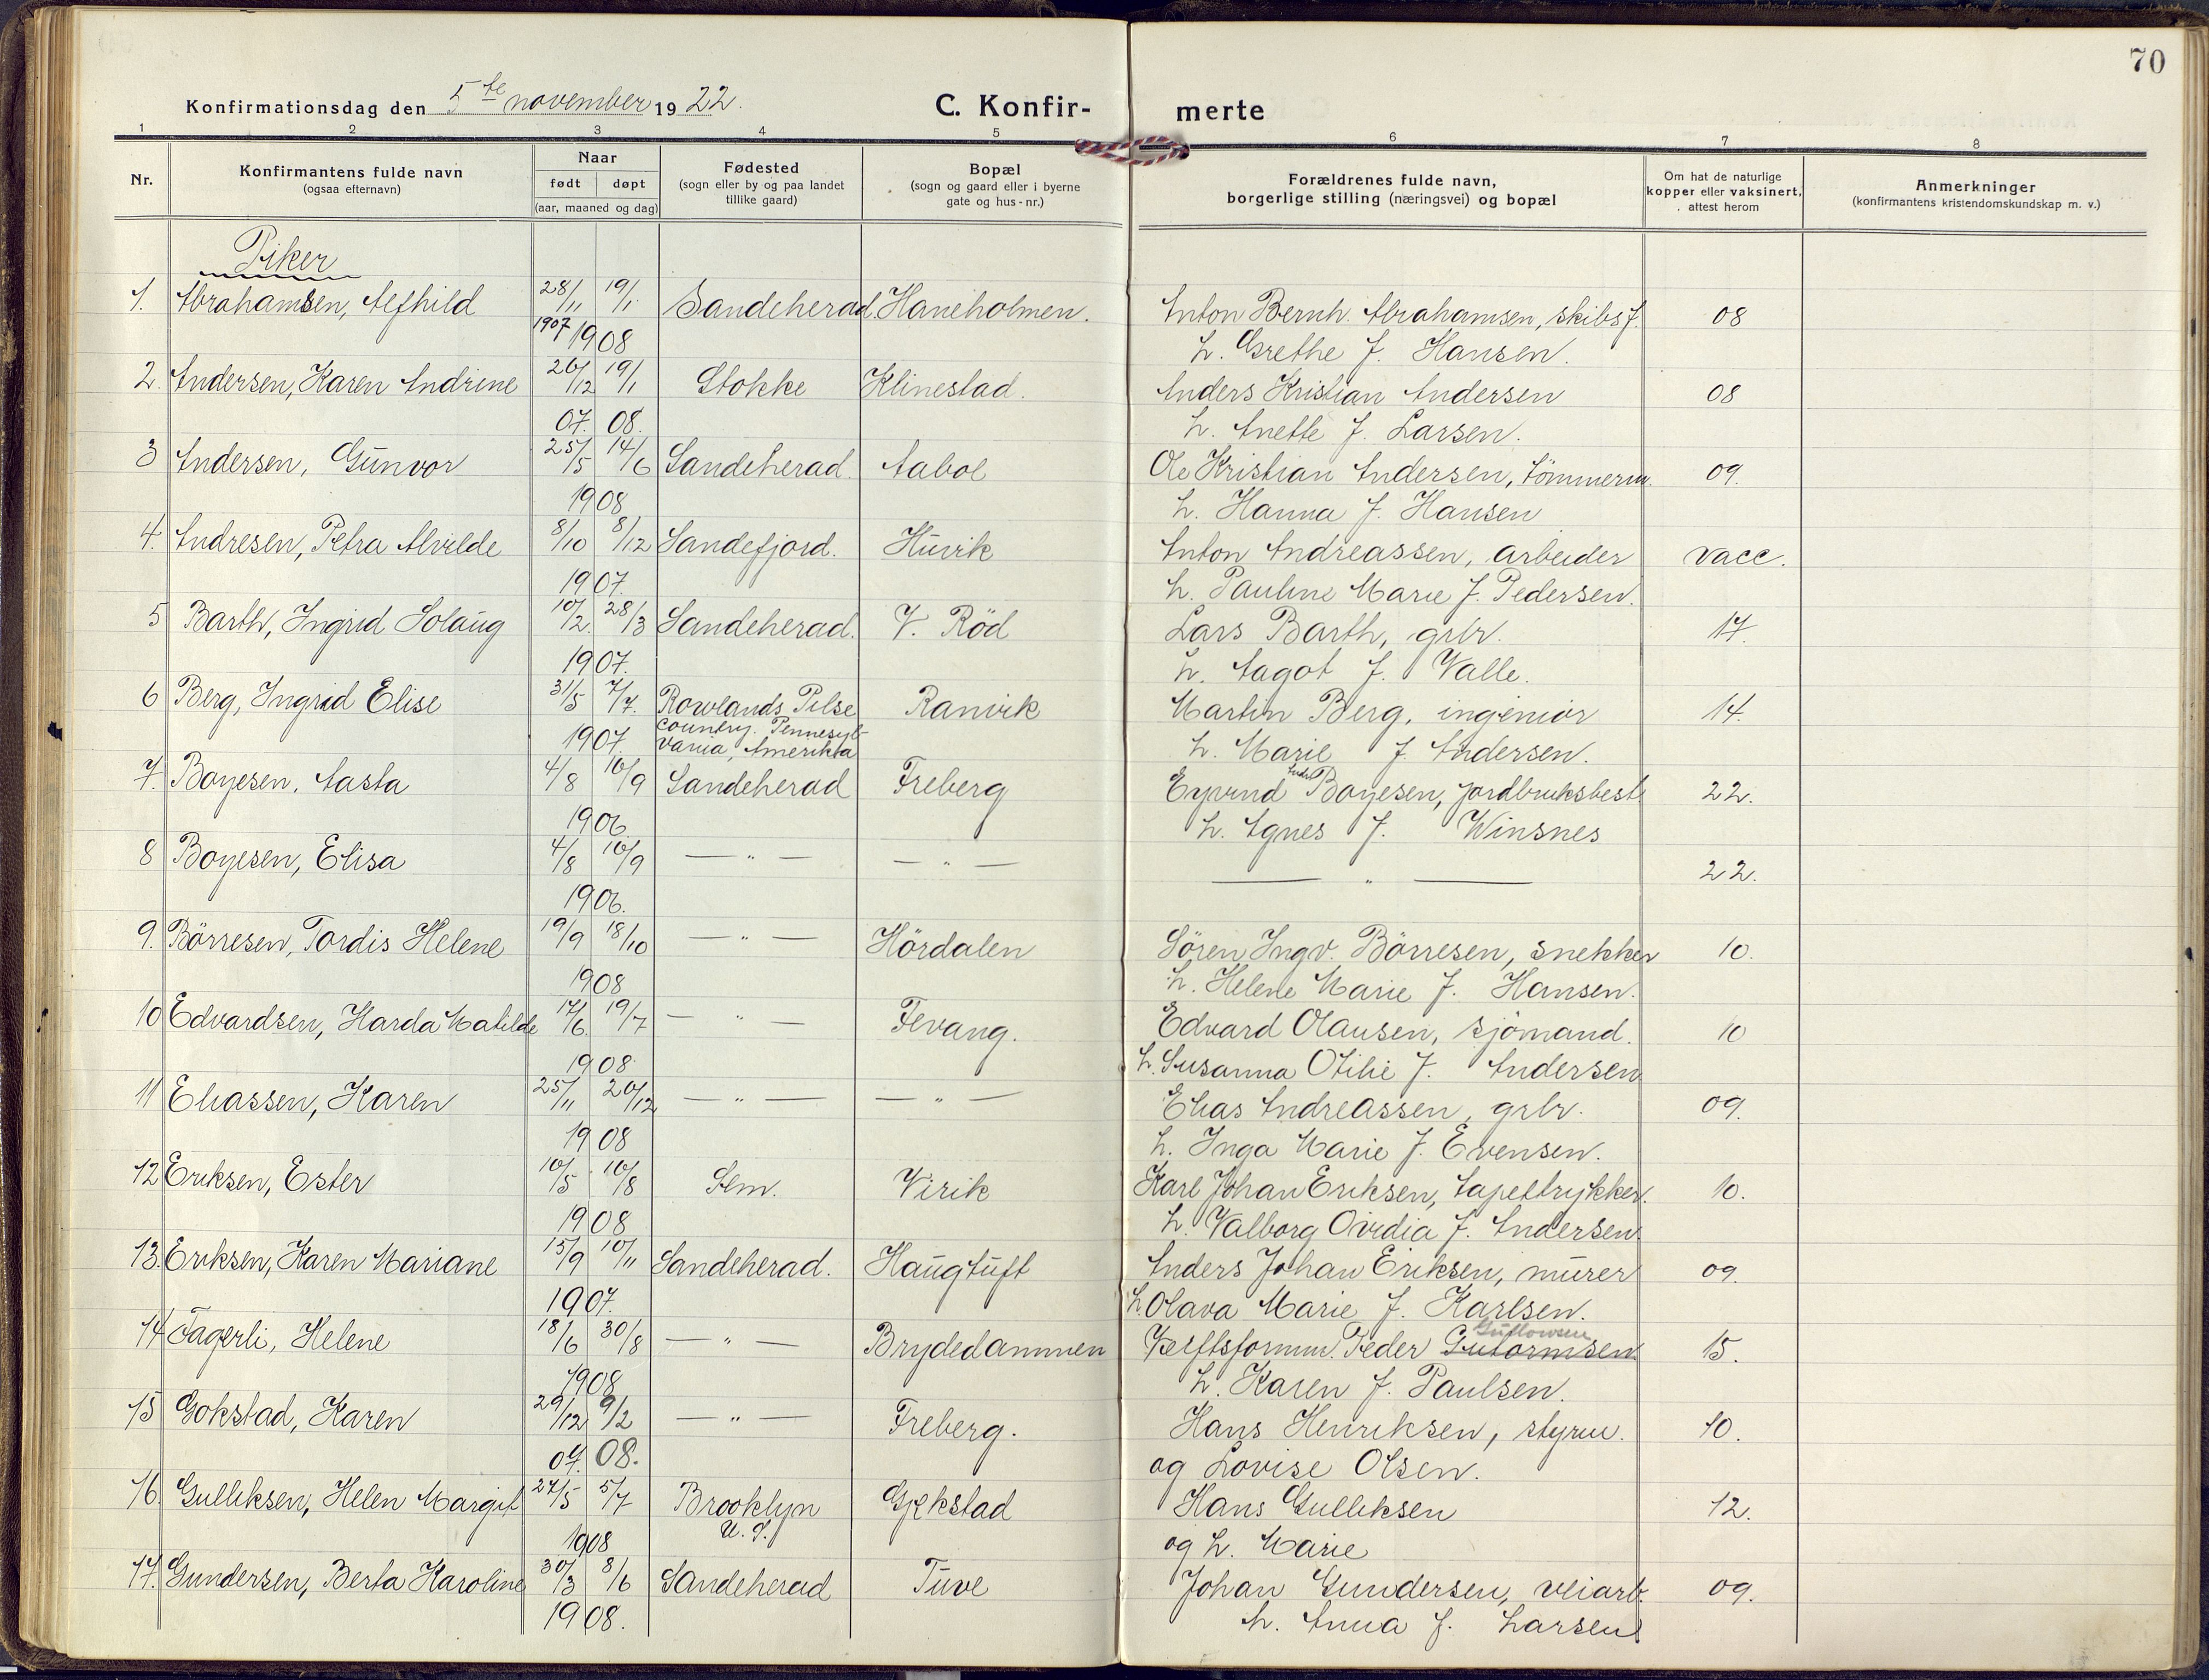 70
Konfirmationsdag den 5te november 1922.
C. Konfir- merte
1 2 3 4 5 6 7 8
Nr.
Konfirmantens fulde navn
(ogsaa efternavn)
Naar
født døpt
(aar, maaned og dag)
Fødested
(sogn eller by og paa landet
tillike gaard)
Bopæl
(sogn og gaard eller i byerne
gate og hus-nr.)
Forældrenes fulde navn,
borgerlige stilling (næringsvei) og bopæl
Om hat de naturlige
kopper eller vaksinert,
attest herom
Anmerkninger
(konfirmantens kristendomskundskap m. v.)
Piker
1. Abrahamsen, Alfhild 28/11 19/1 Sandeherad. Haneholmen. Anton Bernh. Abrahamsen, skibsf. 08
1907 1908 h. Grethe f. Hansen.
2. Andersen, Karen Andrine 26/12 19/1 Stokke Klinestad. Anders Kristian Andersen 08
07. 08. h. Anette f. Larsen.
3 Andersen, Gunvor 25/5 14/6 Sandeherad. Aabol Ole Kristian Andersen, tömmerm. 09.
1908 h. Hanna f. Hansen
4. Andresen, Petra Alvilde 8/10 8/12 Sandefjord. Huvik Anton Andreassen, arbeider vacc.
1907. h. Pauline Marie f. Pedersen.
5 Barth, Ingrid Solaug 10/2. 28/3 Sandeherad. V. Röd Lars Barth, grbr. 17.
1907. h. Aagot f. Valle.
6 Berg, Ingrid Elise 31/5 7/7. Rowlands Pilse Ranvik Martin Berg, ingeniör 14.
1907. country. Pennesyl-
vania, Amerikka h. Marie f. Andersen.
7. Boyesen, Aasta 4/8 16/9 Sandeherad Freberg Eyvind Boyesen, jordbruksbest. 22.
1906 h. Agnes f. Winsnes
8 Boyesen, Elisa 4/8 16/9 — " — — " — — " — 22.
1906.
9. Börresen, Tordis Helene 19/9 18/10 — " — Hördalen Sören Ingv. Börresen, snekker 10.
1908 h. Helene Marie f. Hansen.
10 Edvardsen, Harda Matilde 17/6. 19/7 — " — Fevang. Edvard Olausen, sjömand. 10
1908 h. Susanna Otilie f. Andersen
11 Eliassen, Karen 25/11 20/12 — " — — " — Elias Andreassen, grbr. 09.
1908 h. Inga Marie f. Evensen.
12 Eriksen, Ester 10/5 16/8 Sem. Virik Karl Johan Eriksen, tapettrykker. 10.
1908 h. Valborg Ovidia f. Andersen
13. Eriksen, Karen Mariane 15/9 10/11 Sandeherad. Haugtuft Anders Johan Eriksen, murer 09.
1907. h. Olava Marie f. Karlsen.
14 Fagerli, Helene 18/6 30/8 — " — Brydedammen Værftsformm. Peder Gutormsen 15.
1908 h. Karen f. Paulsen.
15 Gokstad, Karen 29/12 9/2 — " — Freberg. Hans Henriksen, styrm. 10.
07. 08. og Lovise Olsen.
16. Gulliksen, Helen Margit 27/5 5/7 Brooklyn Gjekstad Hans Gulliksen 12.
1908 U. S. og h. Marie
17. Gundersen, Berta Karoline 30/3 8/6 Sandeherad Tuve Johan Gundersen, veiarb. 09.
1908. h. Anna f. Larsen